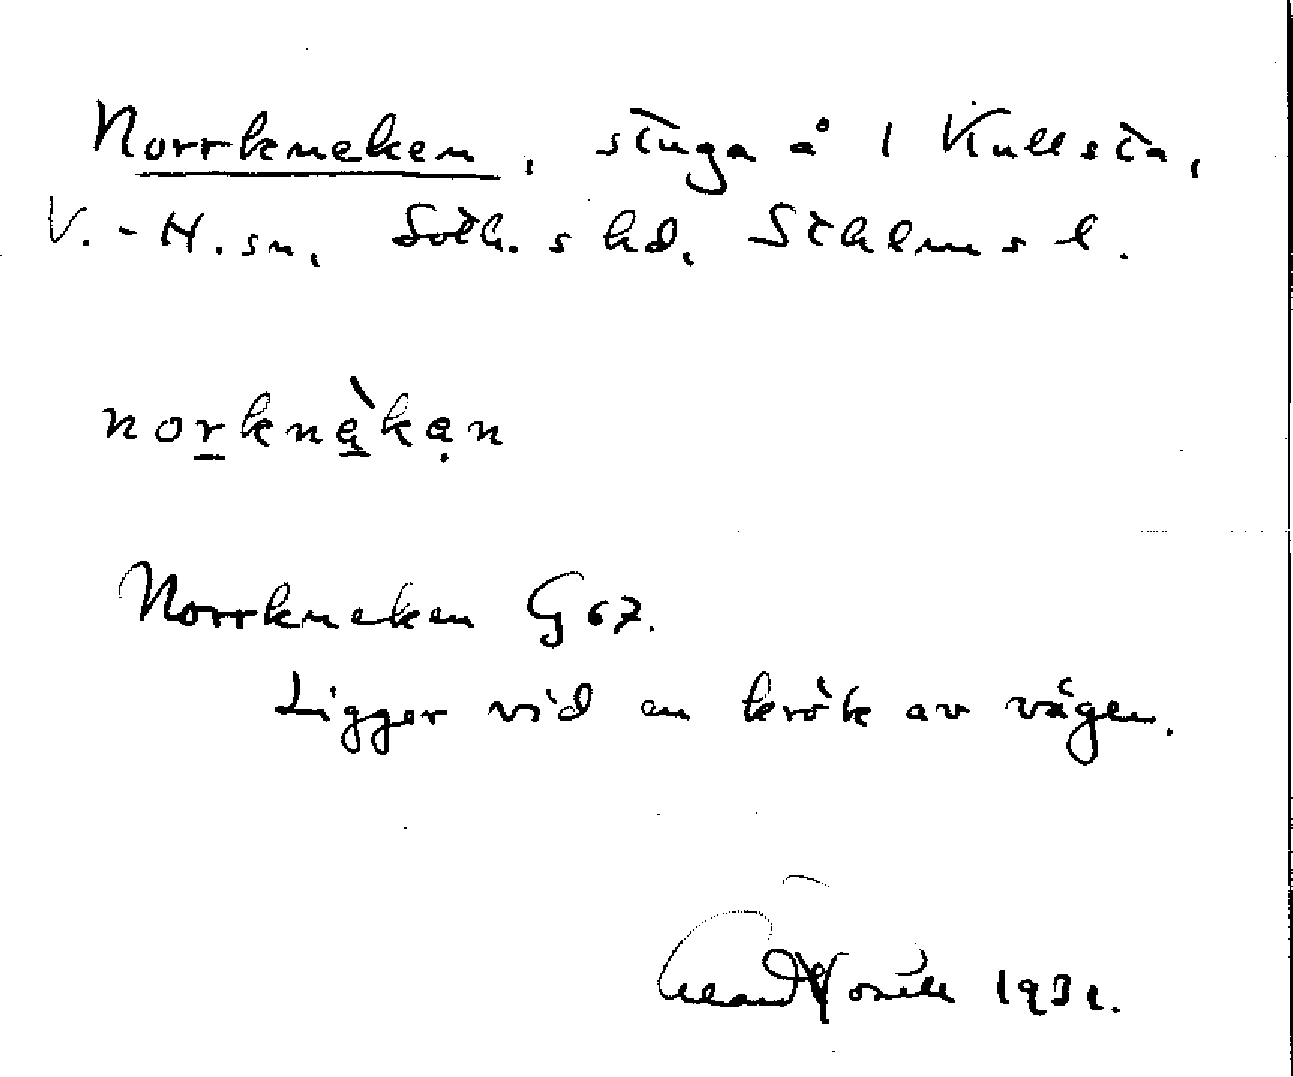 Norrkneken, stuga å 1 Kullsta,
V.-H. sn, Soth.s hd, Sthlms l.
norknèken
Norrkneken G 67.
Ligger vid en krök av vägen.
1931.